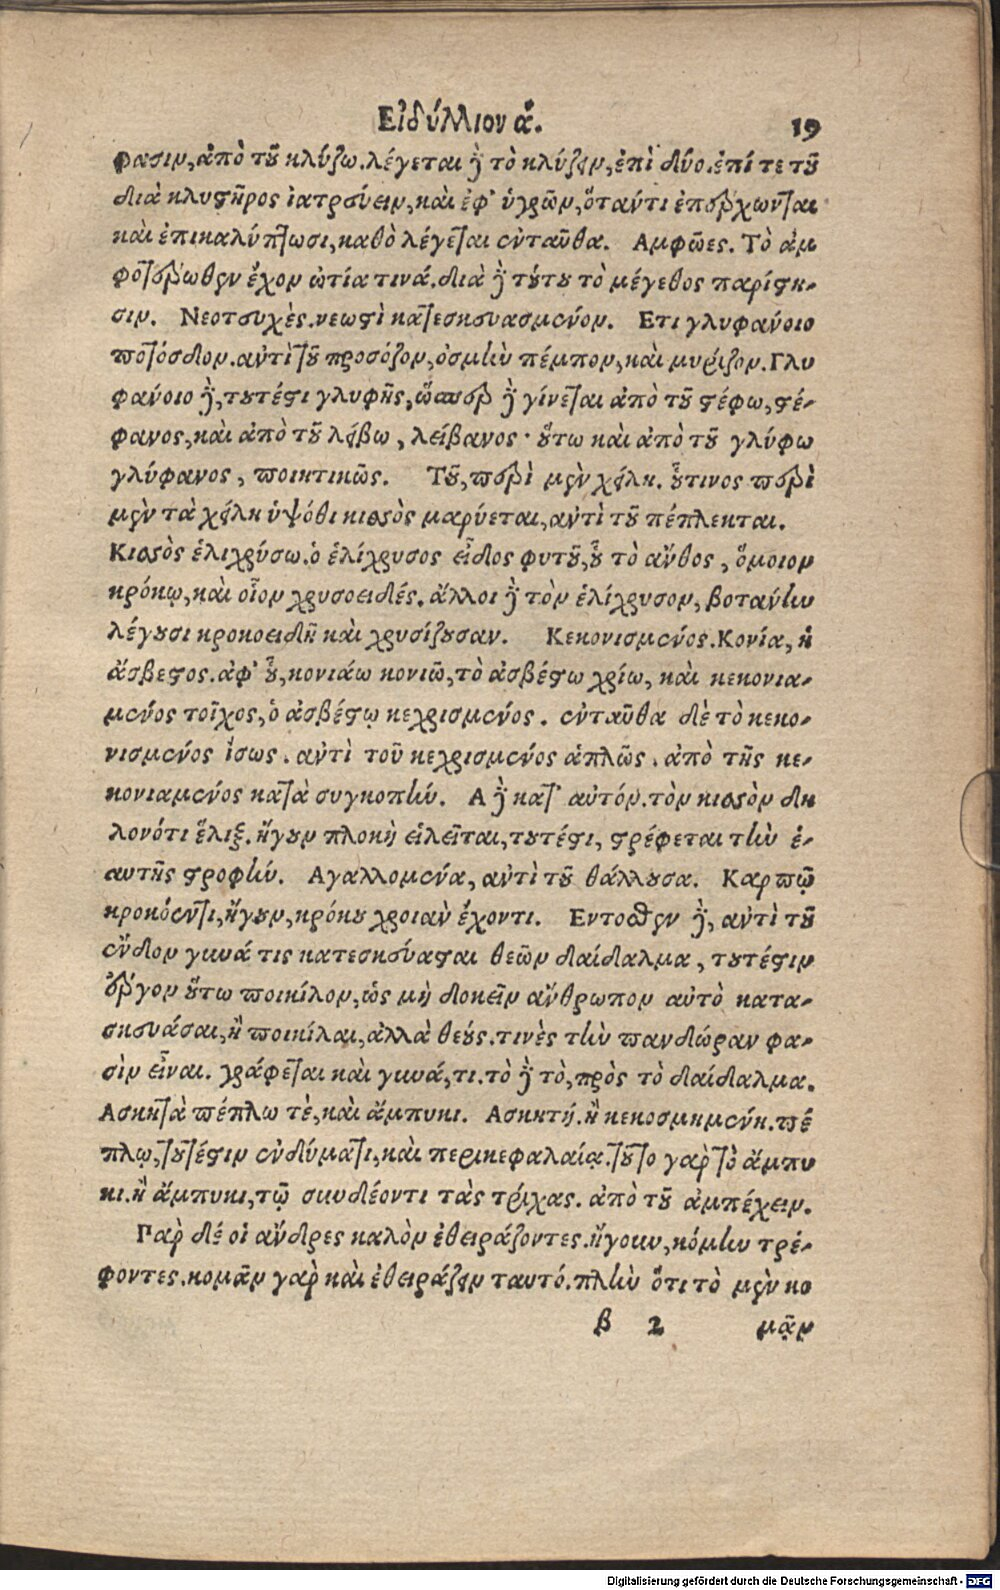 Εἰδύλλιον ά. 19
φασιν, ἀπὸ τοῦ κλύζω. λέγεται δὲ τὸ κλύζειν, ἐπὶ δύο. ἐπί τε τοῦ
διὰ κλυστῆρος ἰατρεύειν, καὶ ἐφ' ὑγρῶν, ὅταν τι ἐπέρχωνται
καὶ ἐπικαλύπτωσι, καθὸ λέγεται ἐνταῦθα. Αμφῶες. Τὸ ἀμ
φοτέρωθεν ἔχον ὠτία τινά. διὰ δὲ τούτου τὸ μέγεθος παρίστη-
σιν. Νεοτευχὲς. νεωστὶ κατεσκευασμένον. Ετι γλυφάνοιο
ποτόσδον. αὐτὶ τοῦ προσόζον, ὀσμὴν πέμπον, καὶ μυρίζον. Γλυ
φάνοιο δὲ, τουτέστι γλυφῆς, ὥσπερ δὲ γίνεται ἀπὸ τοῦ στέφω, στέ-
φανος, καὶ ἀπὸ τοῦ λείβω, λείβανος· οὕτω καὶ ἀπὸ τοῦ γλύφω
γλύφανος, ποιητικῶς. Τοῦ, περὶ μὲν χείλη. οὗτινος περὶ
μὲν τὰ χείλη ὑψόθι κισσὸς μαρύεται, αὐτὶ τοῦ πέπλεκται.
Κισσὸς ἑλιχρύσω. ὁ ἑλίχρυσος εἶδος φυτοῦ, οὗ τὸ ἄνθος, ὅμοιον
κρόκῳ, καὶ οἷον χρυσοειδές. ἄλλοι δὲ τὸν ἑλίχρυσον, βοτάνην
λέγουσι κροκοειδῆ καὶ χρυσίζουσαν. Κεκονισμένος. Κονία, ἡ
ἄσβεστος. ἀφ' οὗ, κονιάω κονιῶ, τὸ ἀσβέστω χρίω, καὶ κεκονια-
μένος τοῖχος, ὁ ἀσβέστῳ κεχρισμένος. ἐνταῦθα δὲ τὸ κεκο-
νισμένος ἴσως. αὐτὶ τοῦ κεχρισμένος ἁπλῶς. ἀπὸ τῆς κε-
κονιαμένος κατὰ συγκοπὴν. Α δὲ κατ' αὐτόν. τὸν κισσὸν δη
λονότι ἕλιξ. ἤγουν πλοκὴ εἱλεῖται, τουτέστι, στρέφεται τὴν ἑ-
αυτῆς στροφὴν. Αγαλλομένα, αὐτὶ τοῦ θάλλουσα. Καρπῷ
κροκόεντι, ἤγουν, κρόκου χροιὰν ἔχοντι. Εντοσθεν δὲ, αὐτὶ τοῦ
ἔνδον γυνά τις κατεσκεύασται θεῶν δαίδαλμα, τουτέστιν
ἔργον οὕτω ποικίλον, ὡς μὴ δοκεῖν ἄνθρωπον αὐτὸ κατα-
σκευάσαι, ἢ ποικίλαι, ἀλλὰ θεούς. τινὲς τὴν πανδώραν φα-
σὶν εἶναι. γράφεται καὶ γυνά, τι. τὸ δὲ τὸ, πρὸς τὸ δαίδαλμα.
Ασκητὰ πέπλω τὲ, καὶ ἄμπυκι. Ασκητή. ἢ κεκοσμημένη. πέ
πλῳ, τουτέστιν ἐνδύματι, καὶ περικεφαλαίᾳ. τοῦτο γαρ τὸ ἄμπυ
κι. ἢ ἄμπυκι, τῷ συνδέοντι τὰς τρίχας. ἀπὸ τοῦ ἀμπέχειν.
Παρ δέ οἱ ἄνδρες καλὸν ἐθειράζοντες. ἤγουν, κόμην τρέ-
φοντες. κομᾶν γαρ καὶ ἐθειράζειν ταυτό. πλὴν ὅτι τὸ μὲν κο
β 2 μᾷν
Digitalisierung gefördert durch die Deutsche Forschungsgemeinschaft - DFG